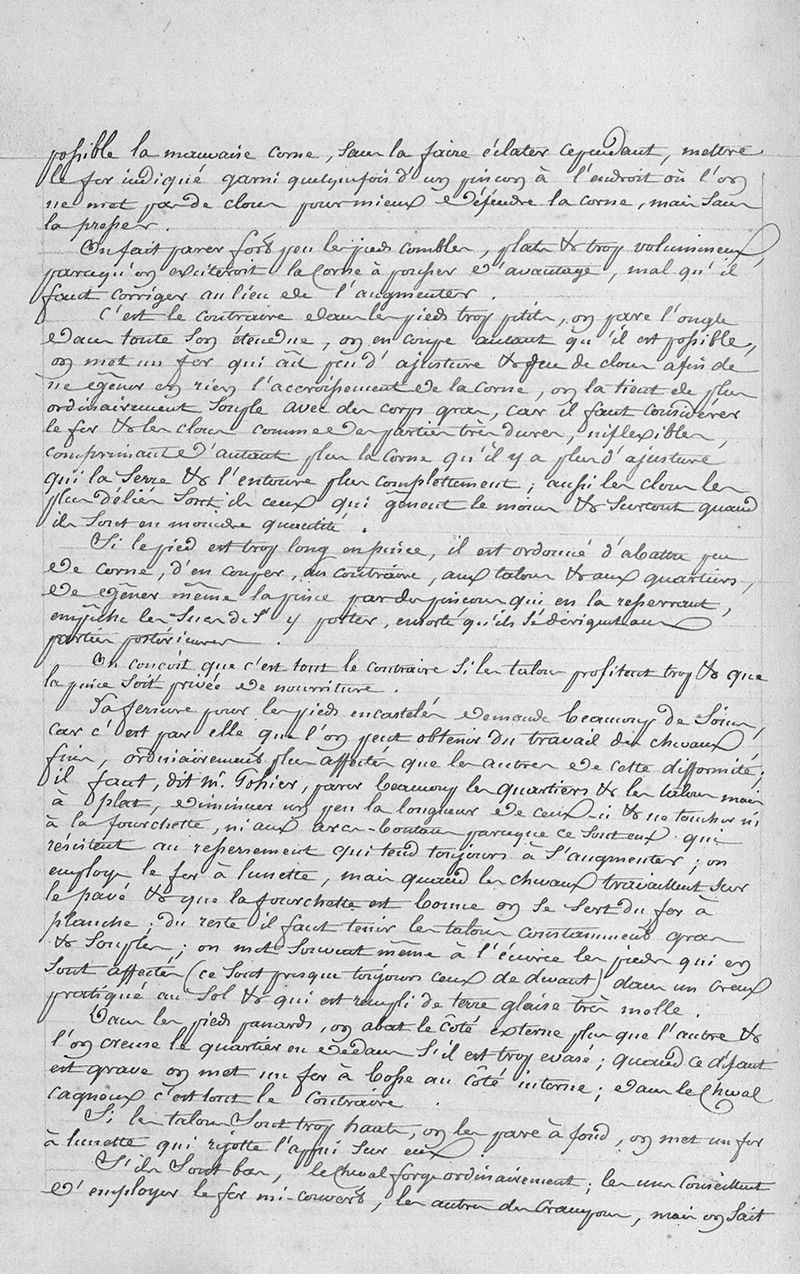 possible la mauvaise corne, sans la faire éclater cependant, mettre
le fer indiqué garni quelquefois d'un pincon à l'endroit où l'on
ne met pas de clous pour mieux défendre la corne, mais sans
la presser.
On fait parer fort peu les pieds combles, plats & trop volumineux,
parcequ'on exciteroit la Corne à pousser d'avantage, mal qu'il
faut corriger au lieu de l'augmenter.
C'est le contraire dans les pieds trop petits, on pare l'ongle
dans toute son étendue, on en coupe autant qu'il est possible,
on met un fer qui ait peu d'ajusture & peu de clous afin de
ne gêner en rien l'accroissement de la corne, on la tient de plus
ordinairement souple avec des corps gras, car il faut considérer
le fer & les clous comme des parties très dures, inflexibles,
comprimant d'autant plus la corne qu'il y a plus d'ajusture
qui la serre & l'entoure plus complettement; aussi les clous les
plus déliés sont ils ceux qui gênent le moins & surtout quand
ils sont en moindre quantité.
Si le pied est trop long en pince, il est ordonné d'abattre peu
de corne, d'en couper, au contraire, aux talons & aux quartiers,
de gêner même la pince par des pincons qui en la resserrant,
empêche les sucs de s'y porter, ensorte qu'ils se dirigent aux
parties postérieures.
On conçoit que c'est tout le contraire si les talons profitent trop & que
la pince soit privée de nourriture.
La ferrure pour les pieds encastelés demande beaucoup de soins,
car c'est par elle que l'on peut obtenir du travail des chevaux
fins, ordinairement plus affectés que les autres de cette difformité;
il faut, dit mr. Gohier, parer beaucoup les quartiers & les talons mais
à plat, diminuer un peu la longueur de ceux-ci & ne toucher ni
à la fourchette, ni aux arcs-boutans parceque ce sont eux qui
résistent au resserrement qui tend toujours à s'augmenter; on
employe le fer à lunette, mais quand les chevaux travaillent sur
le pavé & que la fourchette est bonne on se sert du fer à
planche; du reste il faut tenir les talons constamment gras
& souples; on met souvent même à l'écurie les pieds qui en
sont affectés (ce sont presque toujours ceux de devant) dans un creux
pratiqué au sol & qui est rempli de terre glaise très molle.
Dans les pieds panards, on abat le côté externe plus que l'autre &
l'on creuse le quartier en dedans s'il est trop evasé; quand ce défaut
est grave on met un fer à bosse au côté interne; dans le Cheval
cagneux c'est tout le contraire.
Si les talons sont trop hauts, on les pare à fond, on met un fer
à lunette qui rejette l'appui sur eux
S'ils sont bas, le Cheval forge ordinairement; les uns conseillent
d'employer le fer mi-couvert, les autres des Crampons, mais on sait